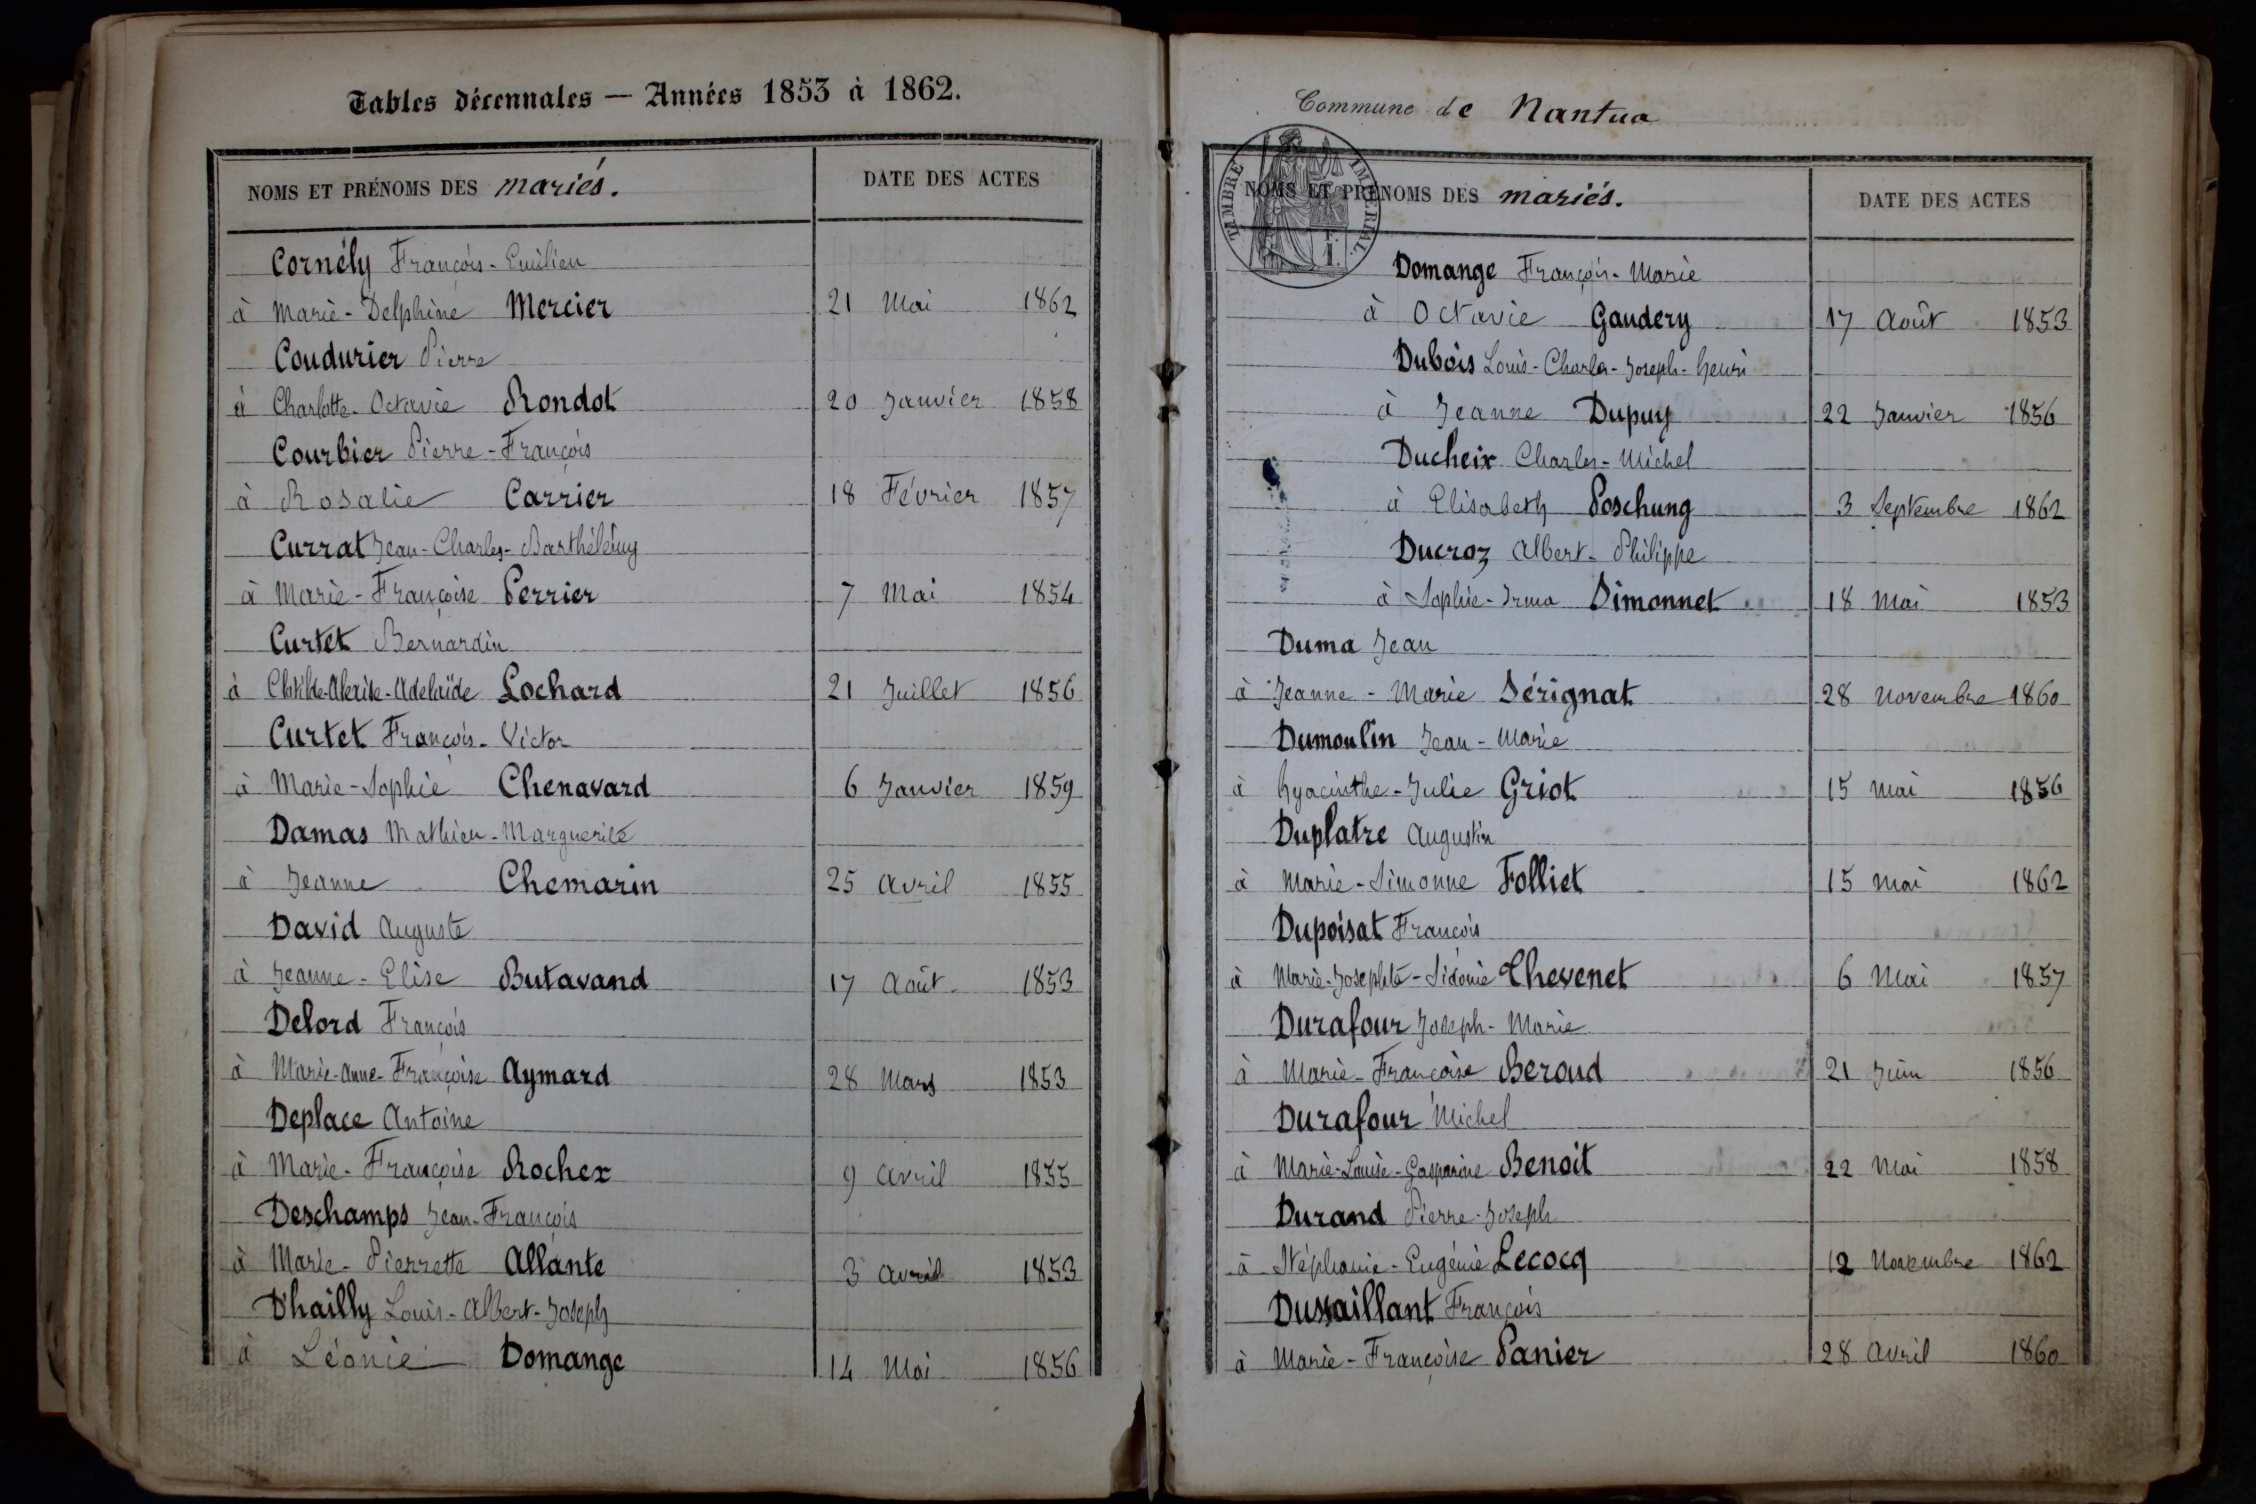 Tables décennales — Années 1853 à 1862.
NOMS ET PRÉNOMS DES mariés. DATE DES ACTES
Cornély François-Emilien
à Marie-Delphine Mercier 21 Mai 1862
Coudurier Pierre
à Charlotte-Octavie Rondot 20 Janvier 1858
Courbier Pierre-François
à Rosalie Carrier 18 Février 1857
Currat Jean-Charles-Barthélémy
à Marie-Françoise Perrier 7 Mai 1854
Curtet Bernardin
à Clotilde-Alexise-Adelaïde Lochard 21 Juillet 1856
Curtet François-Victor
à Marie-Sophie Chenavard 6 Janvier 1859
Damas Mathieu-Marguerite
à Jeanne Chemarin 25 Avril 1855
David Auguste
à Jeanne-Elise Butavand 17 Août 1853
Delord François
à Marie-Anne-Françoise Aymard 28 Mars 1853
Deplace Antoine
à Marie-Françoise Rochex 9 Avril 1855
Deschamps Jean-François
à Marie-Pierrette Allante 3 Avril 1853
D'hailly Louis-Albert-Joseph
à Léonie Domange 14 Mai 1856
Commune de Nantua
TIMBRE IMPÉRIAL
NOMS ET PRÉNOMS DES mariés. DATE DES ACTES
Domange François-Marie
à Octavie Gaudery 17 Août 1853
Dubois Louis-Charles-Joseph-henri
à Jeanne Dupuy 22 Janvier 1856
Ducheix Charles-Michel
à Elisabeth Poschung 3 Septembre 1862
Ducroz Albert-Philippe
à Sophie-Irma Simonnet 18 Mai 1853
Duma Jean
à Jeanne-Marie Sérignat 28 Novembre 1860
Dumoulin Jean-Marie
à hyacinthe-Julie Griot 15 Mai 1856
Duplatre Augustin
à Marie-Simonne Folliet 15 Mai 1862
Dupoisat François
à Marie-Josephte-Sidonie Thevenet 6 Mai 1857
Durafour Joseph-Marie
à Marie-Françoise Beroud 21 Juin 1856
Durafour Michel
à Marie-Louise-Gasparine Benoit 22 Mai 1858
Durand Pierre-Joseph
à Stéphanie-Eugénie Lecocq 12 Novembre 1862
Dussaillant François
à Marie-Françoise Panier 28 Avril 1860